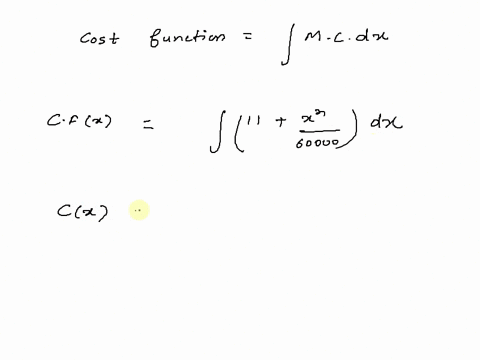 cost function = ∫ M.C. dx
C.F(x) = ∫ (11 + x²/60000) dx
C(x)